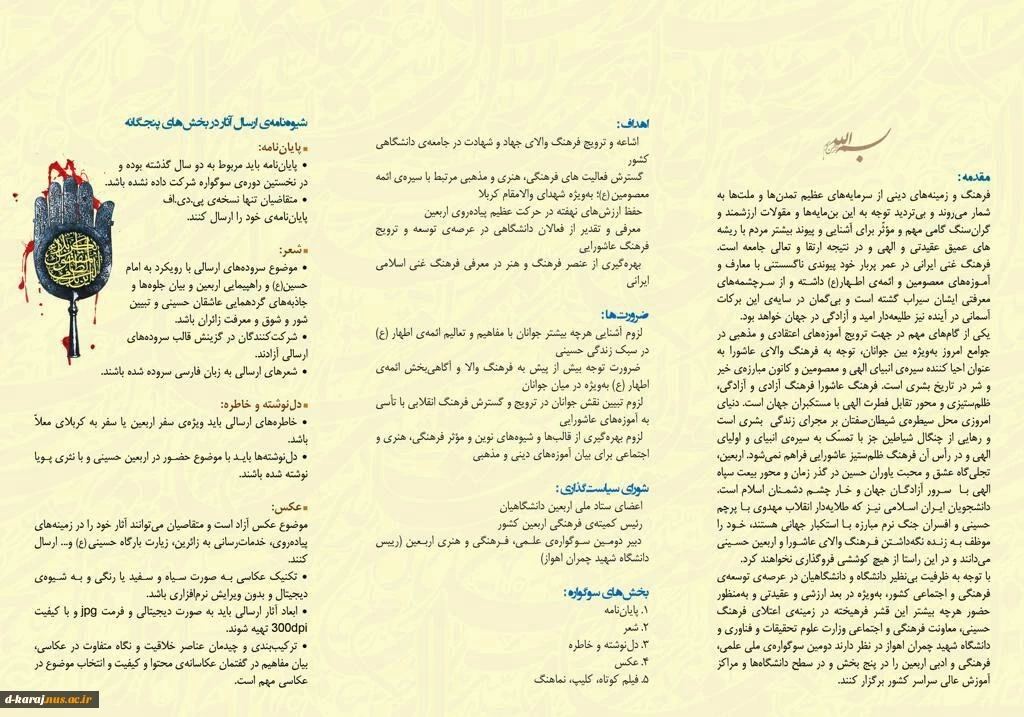 بسم الله
مقدمه:
فرهنگ و زمینه‌های دینی از سرمایه‌های عظیم تمدن‌ها و ملت‌ها به
شمار می‌روند و بی‌تردید توجه به این بن‌مایه‌ها و مقولات ارزشمند و
گران‌سنگ گامی مهم و مؤثّر برای آشنایی و پیوند بیشتر مردم با ریشه
های عمیق عقیدتی و الهی و در نتیجه ارتقا و تعالی جامعه است.
فرهنگ غنی ایرانی در عمر پربار خود پیوندی ناگسستنی با معارف و
آموزه‌های معصومین و ائمه‌ی اطهار(ع) داشته و از سرچشمه‌های
معرفتی ایشان سیراب گشته است و بی‌گمان در سایه‌ی این برکات
آسمانی در آینده نیز طلیعه‌دار امید و آزادگی در جهان خواهد بود.
یکی از گام‌های مهم در جهت ترویج آموزه‌های اعتقادی و مذهبی در
جوامع امروز به‌ویژه بین جوانان، توجه به فرهنگ والای عاشورا به
عنوان احیا کننده سیره‌ی انبیای الهی و معصومین و کانون مبارزه‌ی خیر
و شر در تاریخ بشری است. فرهنگ عاشورا فرهنگ آزادی و آزادگی،
ظلم‌ستیزی و محور تقابل فطرت الهی با مستکبران جهان است. دنیای
امروزی محل سیطره‌ی شیطان‌صفتان بر مجرای زندگی بشری است
و رهایی از چنگال شیاطین جز با تمسک به سیره‌ی انبیای و اولیای
الهی و در رأس آن فرهنگ ظلم‌ستیز عاشورایی فراهم نمی‌شود. اربعین،
تجلی‌گاه عشق و محبت یاوران حسین در گذر زمان و محور بیعت سپاه
الهی با سرور آزادگان جهان و خار چشم دشمنان اسلام است.
دانشجویان ایران اسلامی نیز که طلایه‌دار انقلاب مهدوی با پرچم
حسینی و افسران جنگ نرم مبارزه با استکبار جهانی هستند، خود را
موظف به زنده نگه‌داشتن فرهنگ والای عاشورا و اربعین حسینی
می‌دانند و در این راستا از هیچ کوششی فروگذاری نخواهند کرد.
با توجه به ظرفیت بی‌نظیر دانشگاه و دانشگاهیان در عرصه‌ی توسعه‌ی
فرهنگی و اجتماعی کشور، به‌ویژه در بعد ارزشی و عقیدتی و به‌منظور
حضور هرچه بیشتر این قشر فرهیخته در زمینه‌ی اعتلای فرهنگ
حسینی، معاونت فرهنگی و اجتماعی وزارت علوم تحقیقات و فناوری و
دانشگاه شهید چمران اهواز در نظر دارند دومین سوگواره‌ی ملی علمی،
فرهنگی و ادبی اربعین را در پنج بخش و در سطح دانشگاه‌ها و مراکز
آموزش عالی سراسر کشور برگزار کنند.
اهداف:
اشاعه و ترویج فرهنگ والای جهاد و شهادت در جامعه‌ی دانشگاهی
کشور
گسترش فعالیت های فرهنگی، هنری و مذهبی مرتبط با سیره‌ی ائمه
معصومین(ع)؛ به‌ویژه شهدای والامقام کربلا
حفظ ارزش‌های نهفته در حرکت عظیم پیاده‌روی اربعین
معرفی و تقدیر از فعالان دانشگاهی در عرصه‌ی توسعه و ترویج
فرهنگ عاشورایی
بهره‌گیری از عنصر فرهنگ و هنر در معرفی فرهنگ غنی اسلامی
ایرانی
ضرورت‌ها:
لزوم آشنایی هرچه بیشتر جوانان با مفاهیم و تعالیم ائمه‌ی اطهار (ع)
در سبک زندگی حسینی
ضرورت توجه بیش از پیش به فرهنگ والا و آگاهی‌بخش ائمه‌ی
اطهار (ع) به‌ویژه در میان جوانان
لزوم تبیین نقش جوانان در ترویج و گسترش فرهنگ انقلابی با تأسی
به آموزه‌های عاشورایی
لزوم بهره‌گیری از قالب‌ها و شیوه‌های نوین و مؤثر فرهنگی، هنری و
اجتماعی برای بیان آموزه‌های دینی و مذهبی
شورای سیاست‌گذاری:
اعضای ستاد ملی اربعین دانشگاهیان
رئیس کمیته‌ی فرهنگی اربعین کشور
دبیر دومین سوگواره‌ی علمی، فرهنگی و هنری اربعین (رییس
دانشگاه شهید چمران اهواز)
بخش‌های سوگواره:
۱. پایان‌نامه
۲. شعر
۳. دل‌نوشته و خاطره
۴. عکس
۵. فیلم کوتاه، کلیپ، نماهنگ
شیوه‌نامه‌ی ارسال آثار در بخش‌های پنجگانه
▪ پایان‌نامه:
• پایان‌نامه باید مربوط به دو سال گذشته بوده و
در نخستین دوره‌ی سوگواره شرکت داده نشده باشد.
• متقاضیان تنها نسخه‌ی پی.دی.اف
پایان‌نامه‌ی خود را ارسال کنند.
▪ شعر:
• موضوع سروده‌های ارسالی با رویکرد به امام
حسین(ع) و راهپیمایی اربعین و بیان جلوه‌ها و
جاذبه‌های گردهمایی عاشقان حسینی و تبیین
شور و شوق و معرفت زائران باشد.
• شرکت‌کنندگان در گزینش قالب سروده‌های
ارسالی آزادند.
• شعرهای ارسالی به زبان فارسی سروده شده باشند.
▪ دل‌نوشته و خاطره:
• خاطره‌های ارسالی باید ویژه‌ی سفر اربعین یا سفر به کربلای معلاّ
باشد.
• دل‌نوشته‌ها باید با موضوع حضور در اربعین حسینی و با نثری پویا
نوشته شده باشند.
▪ عکس:
موضوع عکس آزاد است و متقاضیان می‌توانند آثار خود را در زمینه‌های
پیاده‌روی، خدمات‌رسانی به زائرین، زیارت بارگاه حسینی(ع) و... ارسال
کنند.
• تکنیک عکاسی به صورت سیاه و سفید یا رنگی و به شیوه‌ی
دیجیتال و بدون ویرایش نرم‌افزاری باشد.
• ابعاد آثار ارسالی باید به صورت دیجیتالی و فرمت jpg و با کیفیت
300dpi تهیه شوند.
• ترکیب‌بندی و چیدمان عناصر خلاقیت و نگاه متفاوت در عکاسی،
بیان مفاهیم در گفتمان عکاسانه‌ی محتوا و کیفیت و انتخاب موضوع در
عکاسی مهم است.
d-karaj.nus.ac.ir